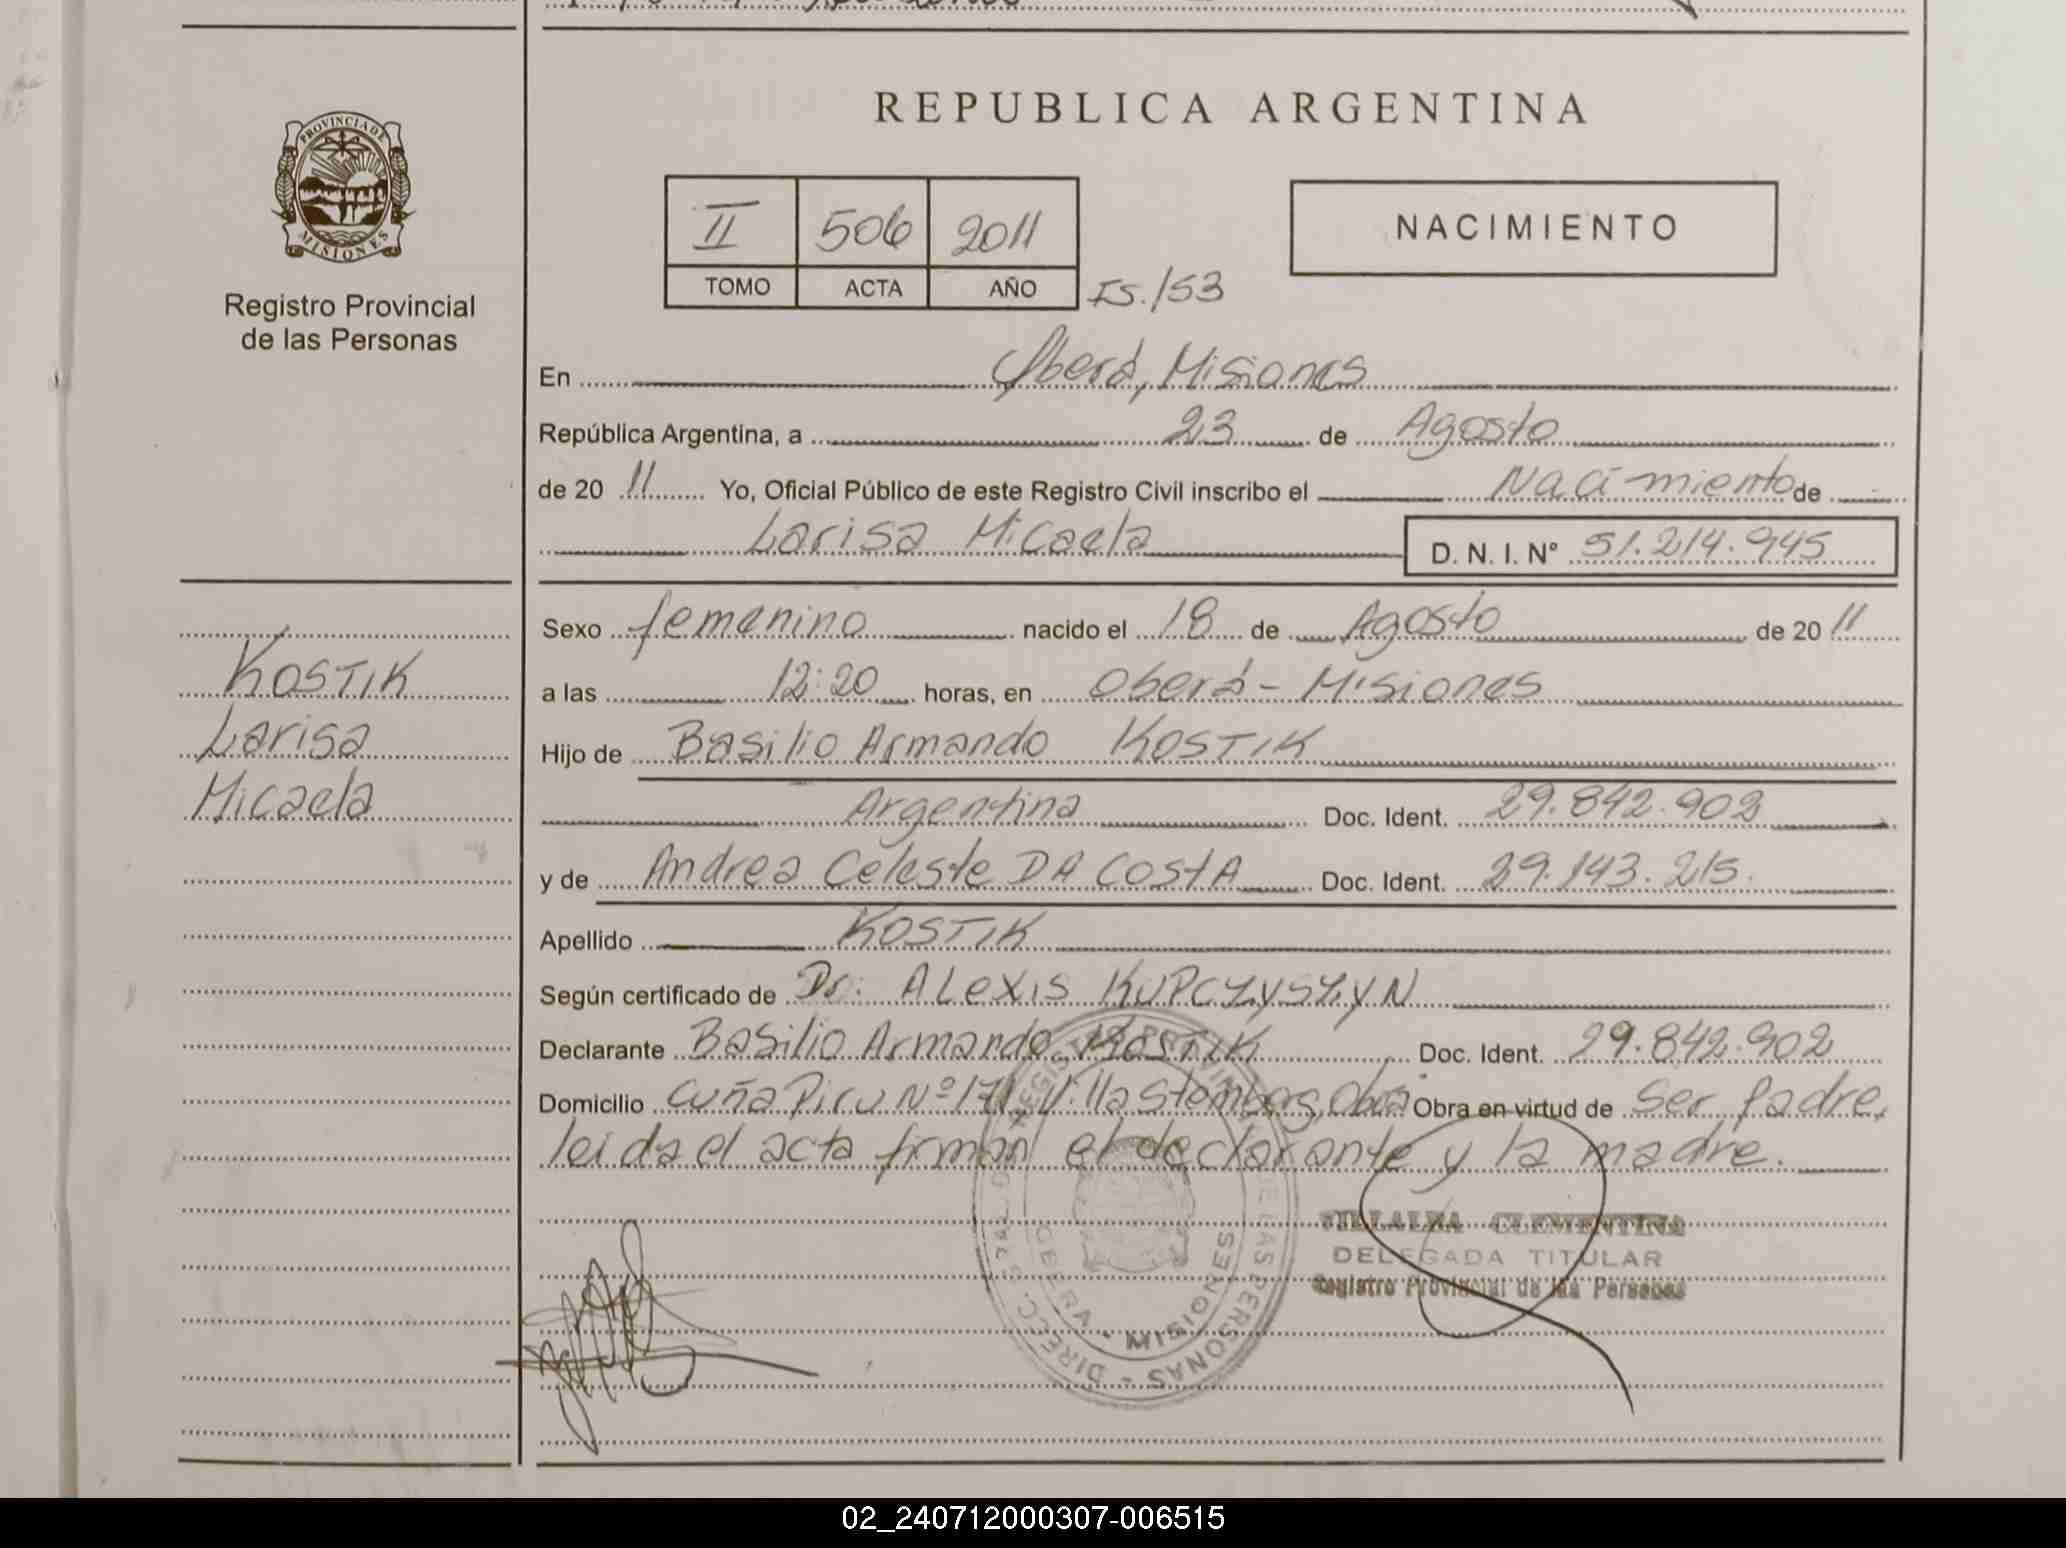 REPUBLICA ARGENTINA
PROVINCIA DE
MISIONES
Registro Provincial
de las Personas
II 506 2011
TOMO ACTA AÑO
Is./53
NACIMIENTO
En Oberá, Misiones
República Argentina, a 23 de Agosto
de 20 11 Yo, Oficial Público de este Registro Civil inscribo el Nacimiento de
Larisa Micaela D. N. I. Nº 51.214.945
KOSTIK
Larisa
Micaela
Sexo femenino nacido el 18 de Agosto de 20 11
a las 12:20 horas, en Oberá - Misiones
Hijo de Basilio Armando KOSTIK
Argentina Doc. Ident. 29.842.902
y de Andrea Celeste DA COSTA Doc. Ident. 29.143.215.
Apellido KOSTIK
Según certificado de Dr: ALEXIS KUPCZYSZYN
Declarante Basilio Armando KOSTIK Doc. Ident. 29.842.902
Domicilio Cuña Pirú Nº 171, Villa Obra en virtud de ser padre,
leida el acta firman el declarante y la madre.
VILLALBA CLEMENTINA
DELEGADA TITULAR
Registro Provincial de las Personas
OBERA - MISIONES
02_240712000307-006515